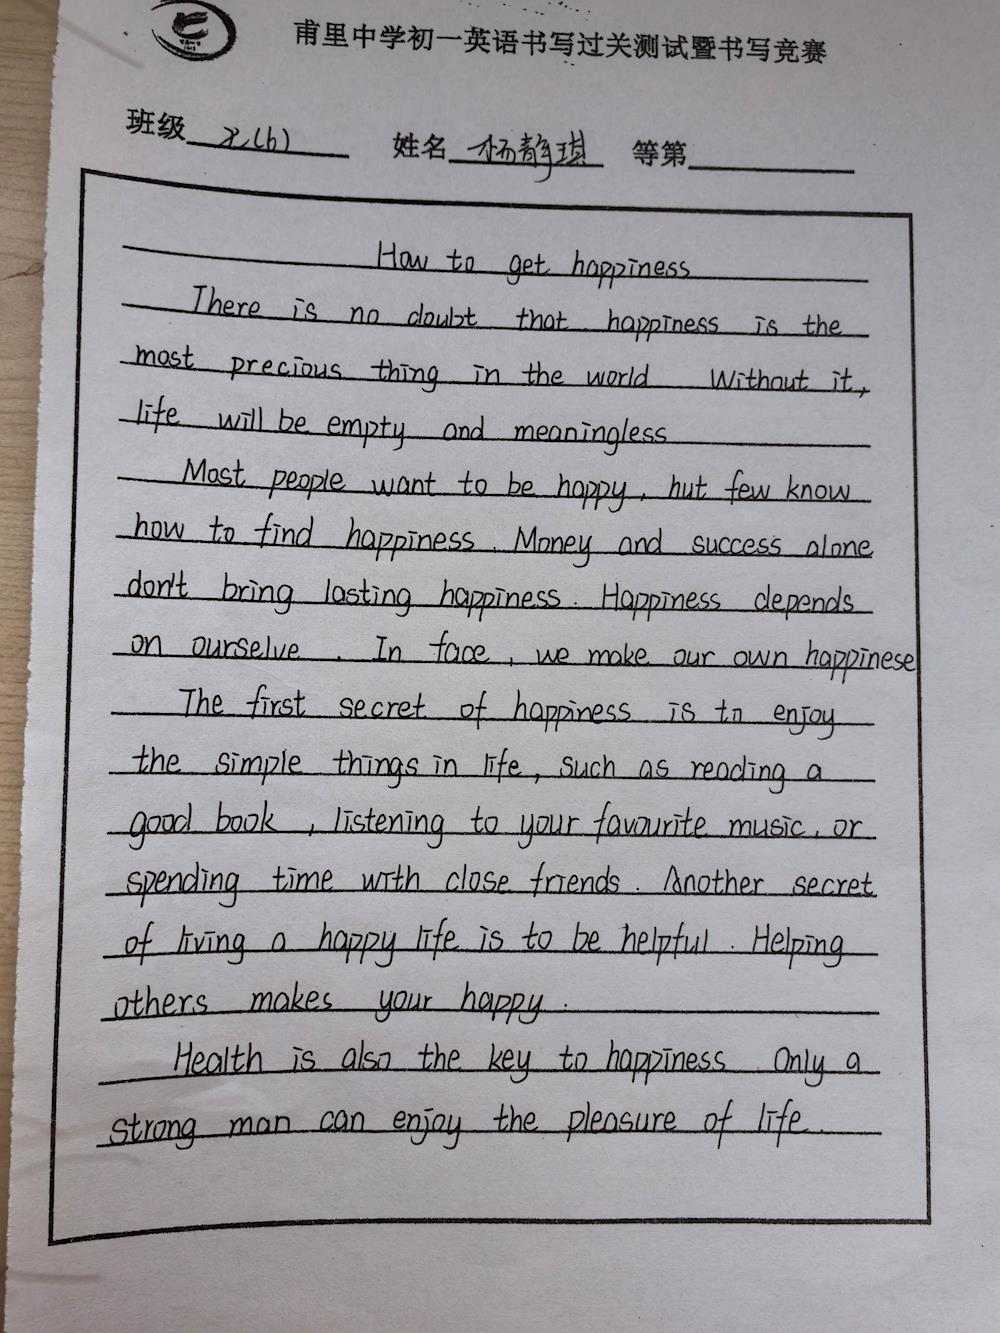 甫里中学初一英语书写过关测试暨书写竞赛
班级 姓名 杨静琪 等第
How to get happiness
There is no doubt that happiness is the
most precious thing in the world Without it,
life will be empty and meaningless
Most people want to be happy, hut few know
how to find happiness. Money and success alone
don't bring lasting happiness. Happiness depends
on ourselve. In face, we make our own happinese
The first secret of happiness is to enjoy
the simple things in life, such as reading a
good book, listening to your favourite music, or
spending time with close friends. Another secret
of living a happy life is to be helpful. Helping
others makes your happy.
Health is also the key to happiness. Only a
strong man can enjoy the pleasure of life.